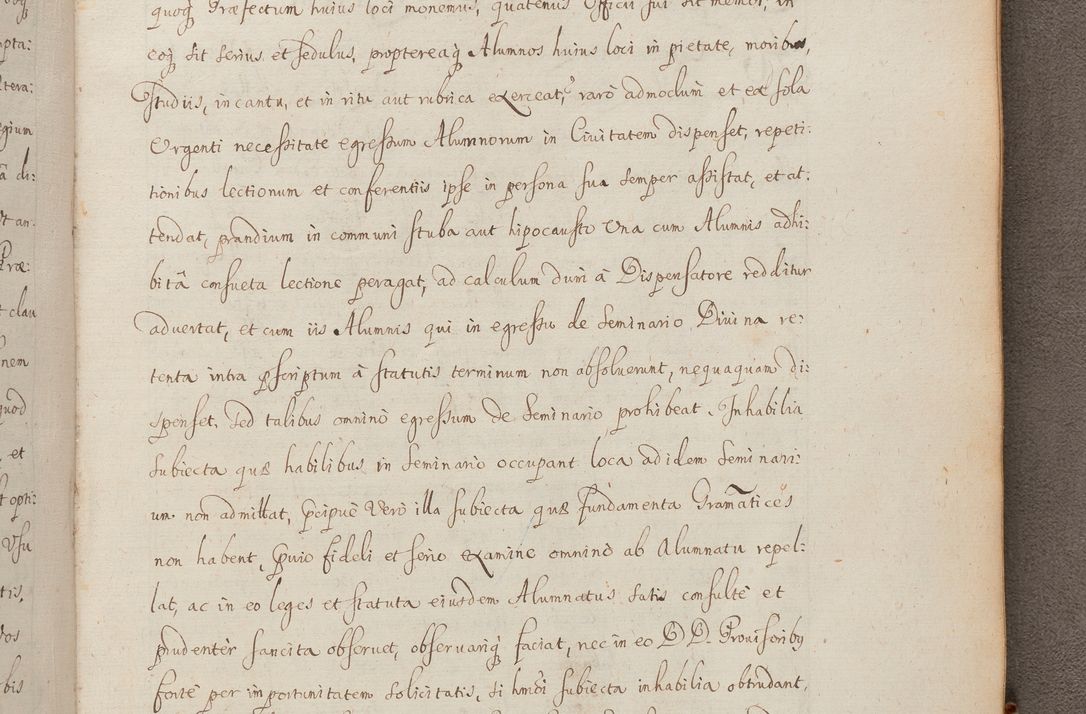 quoq; Præfectum huius loci monemus, quatenus Officii sui sit memor, in
eoq; sit serius et sedulus, proptereaq; Alumnos huius loci in pietate, moribus,
Studiis, in cantu, et in ritu aut rubrica exerceat, raro admodum et ex sola
Urgenti necessitate egressum Alumnorum in Civitatem dispenset, repeti:
tionibus lectionum et conferentiis ipse in persona sua semper assistat, et at:
tendat, prandium in communi stuba aut hipocausto Una cum Alumnis adhi:
bitâ consueta lectione peragat, ad calculum dum à Dispensatore redditur
advertat, et cum iis Alumnis qui in egressu de Seminario Divina re:
tenta intra pscriptum à statutis terminum non absolverint, nequaquam di:
spenset, sed talibus omninò egressum de Seminario prohibeat. Inhabilia
subiecta quæ habilibus in Seminario occupant loca ad idem Seminari:
um non admittat, pcipuè Verò illa subiecta quæ fundamenta Gramãtices
non habent, pvio fideli et serio examine omninò ab Alumnatu repel:
lat, ac in eo leges et statuta eiusdem Alumnatus satis consultè et
prudentèr sancita observet, observariq; faciat, nec in eo DD. Provisoriby
fortè per importunitatem solicitatis, si hmõi subiecta inhabilia obtrudant,
pta:
tera:
egium
ã di:
t an:
Præ:
t clau
nem
quod
, et
t opti:
Usu
tis,
Vos
bis